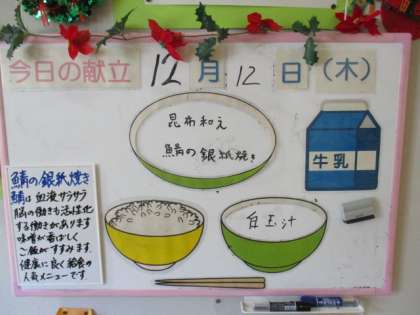 今日の献立 12月12日(木)
昆布和え
鯖の銀紙焼き
牛乳
白玉汁
鯖の銀紙焼き
鯖は血液サラサラ
脳の働きも活性化
する働きがあります
味噌が香ばしく
ご飯がすすみます。
健康に良く給食の
人気メニューです